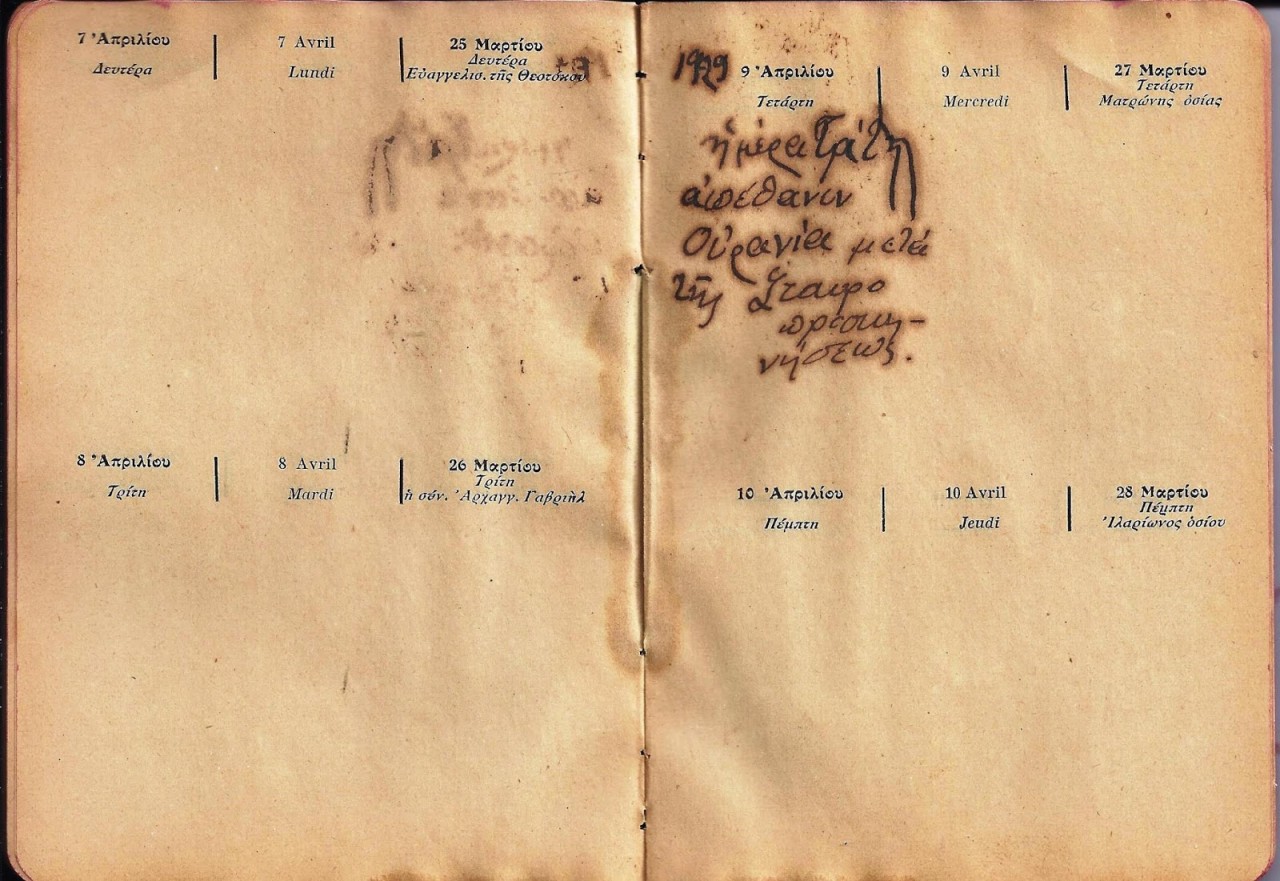 7 Ἀπριλίου
Δευτέρα
7 Avril
Lundi
25 Μαρτίου
Δευτέρα
Εὐαγγελισ. τῆς Θεοτόκου
8 Ἀπριλίου
Τρίτη
8 Avril
Mardi
26 Μαρτίου
Τρίτη
ἡ σύν. Ἀρχαγγ. Γαβριὴλ
1929
9 Ἀπριλίου
Τετάρτη
9 Avril
Mercredi
27 Μαρτίου
Τετάρτη
Ματρώνης ὁσίας
ἡμέρα
ἀπέθανιν
Οὐρανία μετά
τῆς Σταυρο
προσκυ-
νήσεως.
10 Ἀπριλίου
Πέμπτη
10 Avril
Jeudi
28 Μαρτίου
Πέμπτη
Ἱλαρίωνος ὁσίου